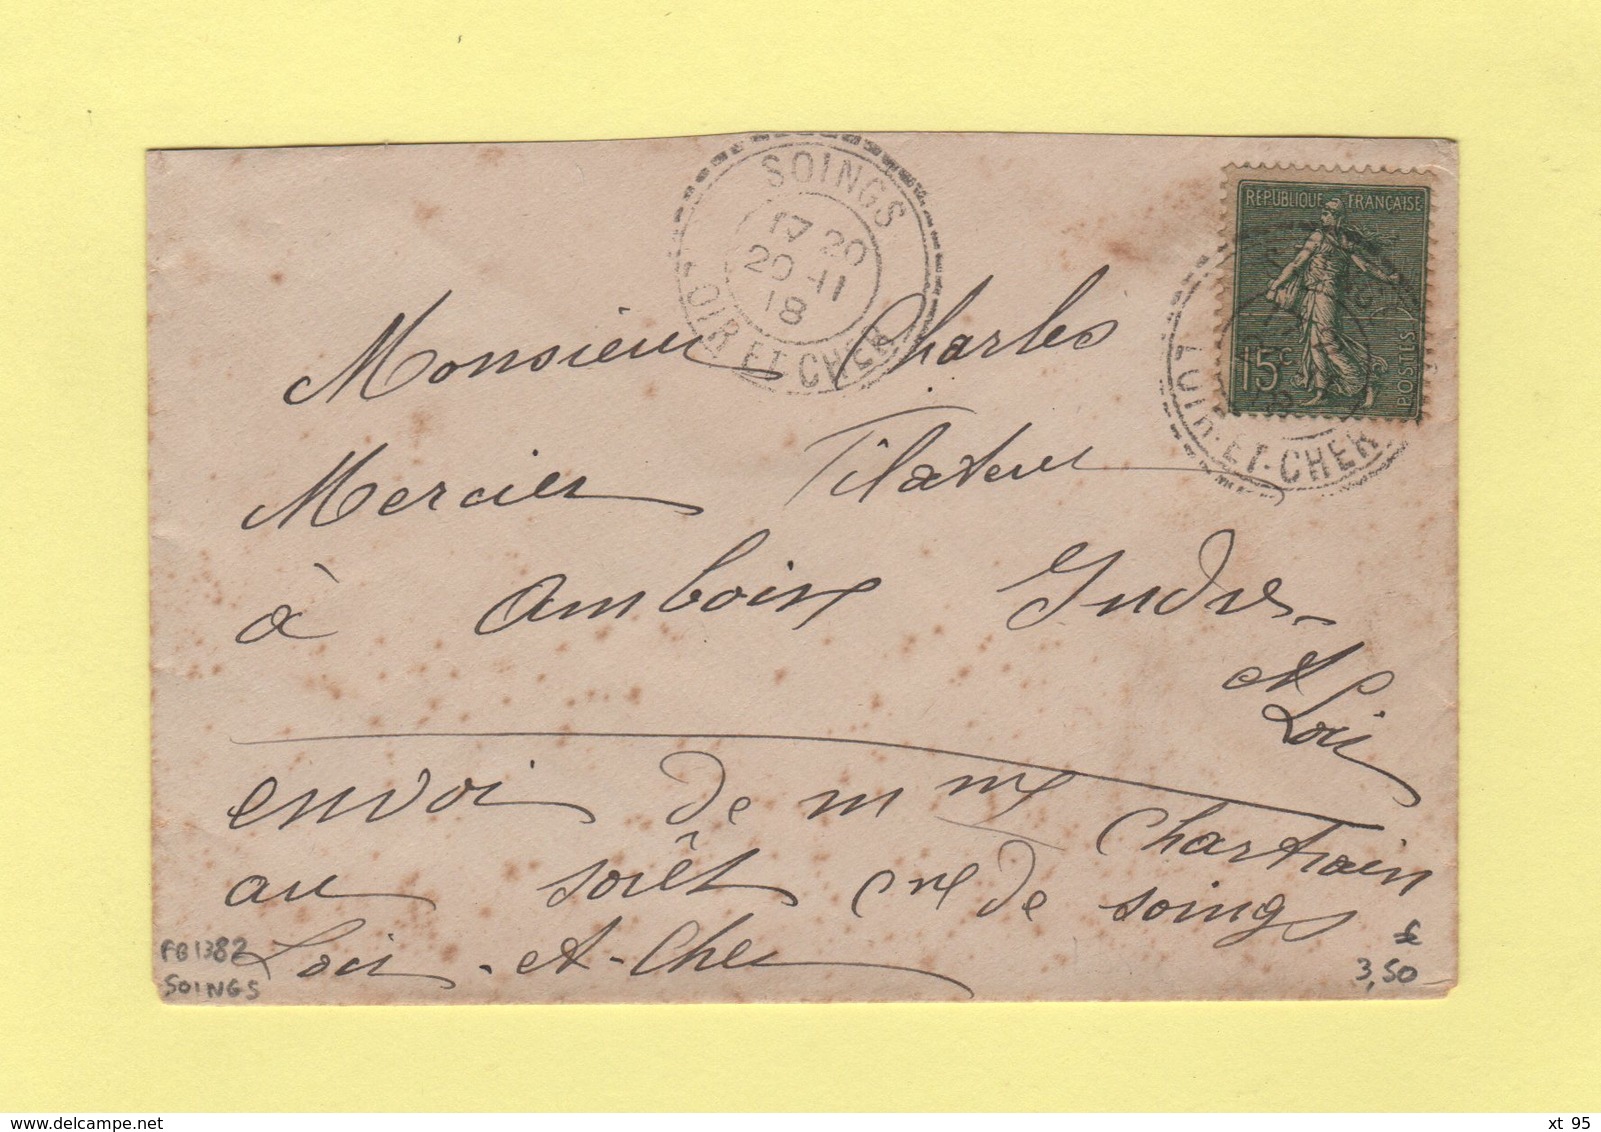 SOINGS
17 20
20 -11
18
LOIR ET CHER
REPUBLIQUE FRANÇAISE
15c
POSTES
LOIR-ET-CHER
Monsieur Charles
Mercier Filateur
à Amboise Indre
et Loir
envoi de m me Chartrain
au forêt cne de soings
Loir-et-Cher
FB1382
SOINGS
3,50
xt 95